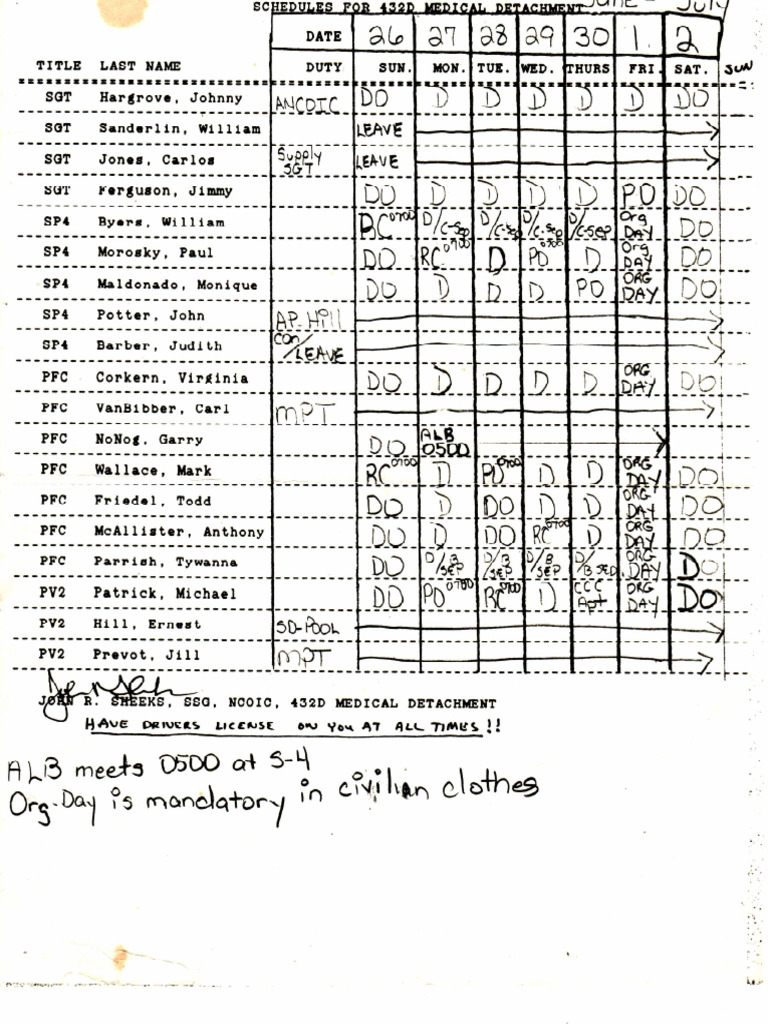 SCHEDULES FOR 432D MEDICAL DETACHMENT June - July
DATE 26 27 28 29 30 1. 2
TITLE LAST NAME DUTY SUN. MON. TUE. WED. THURS FRI. SAT. SUN
SGT Hargrove, Johnny ANCDIC DO D D D D D DO
SGT Sanderlin, William LEAVE
SGT Jones, Carlos Supply SGT LEAVE
SGT Ferguson, Jimmy DO D D D D PO DO
SP4 Byers, William RC 0700 D/C-Sep D/C-Sep D/C-Sep D/C-Sep Org DAY DO
SP4 Morosky, Paul DO RC 0700 D PO 0700 D Org DAY DO
SP4 Maldonado, Monique DO D D D PO ORG DAY DO
SP4 Potter, John AP-Hill
SP4 Barber, Judith Con/LEAVE
PFC Corkern, Virginia DO D D D D ORG DAY DO
PFC VanBibber, Carl MPT
PFC NoNog, Garry DO ALB 0500
PFC Wallace, Mark RC 0700 D PO 0700 D D ORG DAY DO
PFC Friedel, Todd DO D DO D D ORG DAY DO
PFC McAllister, Anthony DO D DO RC 0700 D ORG DAY DO
PFC Parrish, Tywanna DO D/B SEP D/B SEP D/B SEP D/B SEP ORG DAY DO
PV2 Patrick, Michael DO PO 0700 RC 0700 D CCC Apt ORG DAY DO
PV2 Hill, Ernest SD-POOL
PV2 Prevot, Jill MPT
JOHN R. SHEEKS, SSG, NCOIC, 432D MEDICAL DETACHMENT
HAVE DRIVERS LICENSE ON YOU AT ALL TIMES!!
ALB meets 0500 at S-4
Org-Day is mandatory in civilian clothes